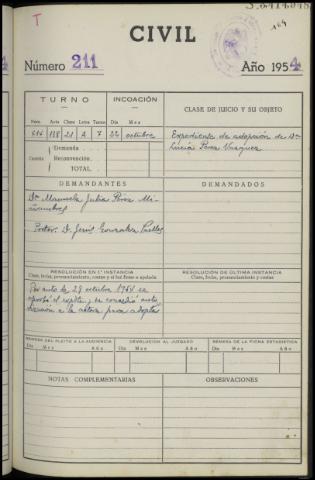 T
184
CIVIL
Número 211
Año 1954
TURNO
INCOACIÓN
CLASE DE JUICIO Y SU OBJETO
Núm. Auts. Clase Letra Turno Día Mes
614 188 21 A 7 22 octubre
Expediente de adopción de Dª
Lucía Perea Vazquez
Cuantía
Demanda
Reconvención
TOTAL
DEMANDANTES
DEMANDADOS
Dª Manuela Julia Perea Mi-
Doctor D. Jesús Gonzalez
RESOLUCIÓN EN 1.ª INSTANCIA
Clase, fecha, pronunciamiento, costas y si fué firme o apelada
RESOLUCIÓN DE ÚLTIMA INSTANCIA
Clase, fecha, pronunciamiento y costas
Por auto de 29 octubre 1954 se
aprobó el expte. y se concedió auto-
rización a la actora para adoptar
REMESA DEL PLEITO A LA AUDIENCIA
DEVOLUCIÓN AL JUZGADO
REMESA DE LA FICHA ESTADÍSTICA
Día Mes Año Día Mes Año Día Mes Año
NOTAS COMPLEMENTARIAS
OBSERVACIONES